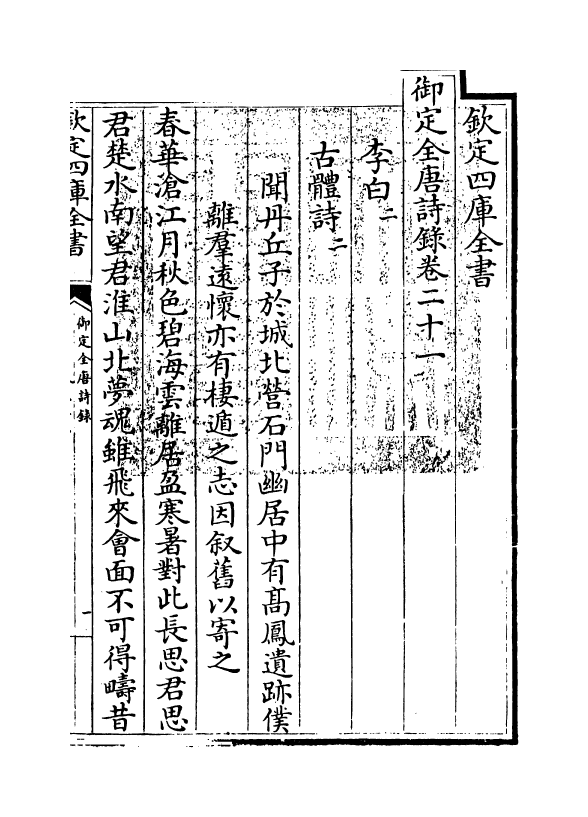 欽定四庫全書
御定全唐詩錄卷二十一
李白二
古體詩二
聞丹丘子於城北營石門幽居中有髙鳳遺跡僕
離羣遠懷亦有棲遁之志因叙舊以寄之
春華滄江月秋色碧海雲離居盈寒暑對此長思君思
君楚水南望君淮山北夢魂雖飛來會面不可得疇昔
欽定四庫全書
御定全唐詩錄
一